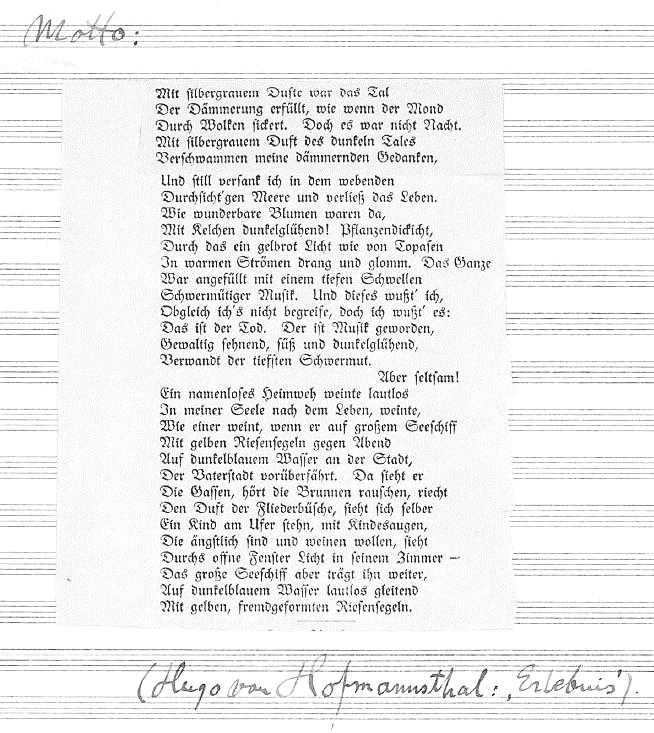 Motto:
Mit silbergrauem Dufte war das Tal
Der Dämmerung erfüllt, wie wenn der Mond
Durch Wolken sickert. Doch es war nicht Nacht.
Mit silbergrauem Duft des dunkeln Tales
Verschwammen meine dämmernden Gedanken,
Und still versank ich in dem webenden
Durchsicht'gen Meere und verließ das Leben.
Wie wunderbare Blumen waren da,
Mit Kelchen dunkelglühend! Pflanzendickicht,
Durch das ein gelbrot Licht wie von Topasen
In warmen Strömen drang und glomm. Das Ganze
War angefüllt mit einem tiefen Schwellen
Schwermütiger Musik. Und dieses wußt' ich,
Obgleich ich's nicht begreife, doch ich wußt' es:
Das ist der Tod. Der ist Musik geworden,
Gewaltig sehnend, süß und dunkelglühend,
Verwandt der tiefsten Schwermut.
Aber seltsam!
Ein namenloses Heimweh weinte lautlos
In meiner Seele nach dem Leben, weinte,
Wie einer weint, wenn er auf großem Seeschiff
Mit gelben Riesensegeln gegen Abend
Auf dunkelblauem Wasser an der Stadt,
Der Vaterstadt vorüberfährt. Da sieht er
Die Gassen, hört die Brunnen rauschen, riecht
Den Duft der Fliederbüsche, sieht sich selber
Ein Kind am Ufer stehn, mit Kindesaugen,
Die ängstlich sind und weinen wollen, sieht
Durchs offne Fenster Licht in seinem Zimmer —
Das große Seeschiff aber trägt ihn weiter,
Auf dunkelblauem Wasser lautlos gleitend
Mit gelben, fremdgeformten Riesensegeln.
(Hugo von Hofmannsthal: ‚Erlebnis').